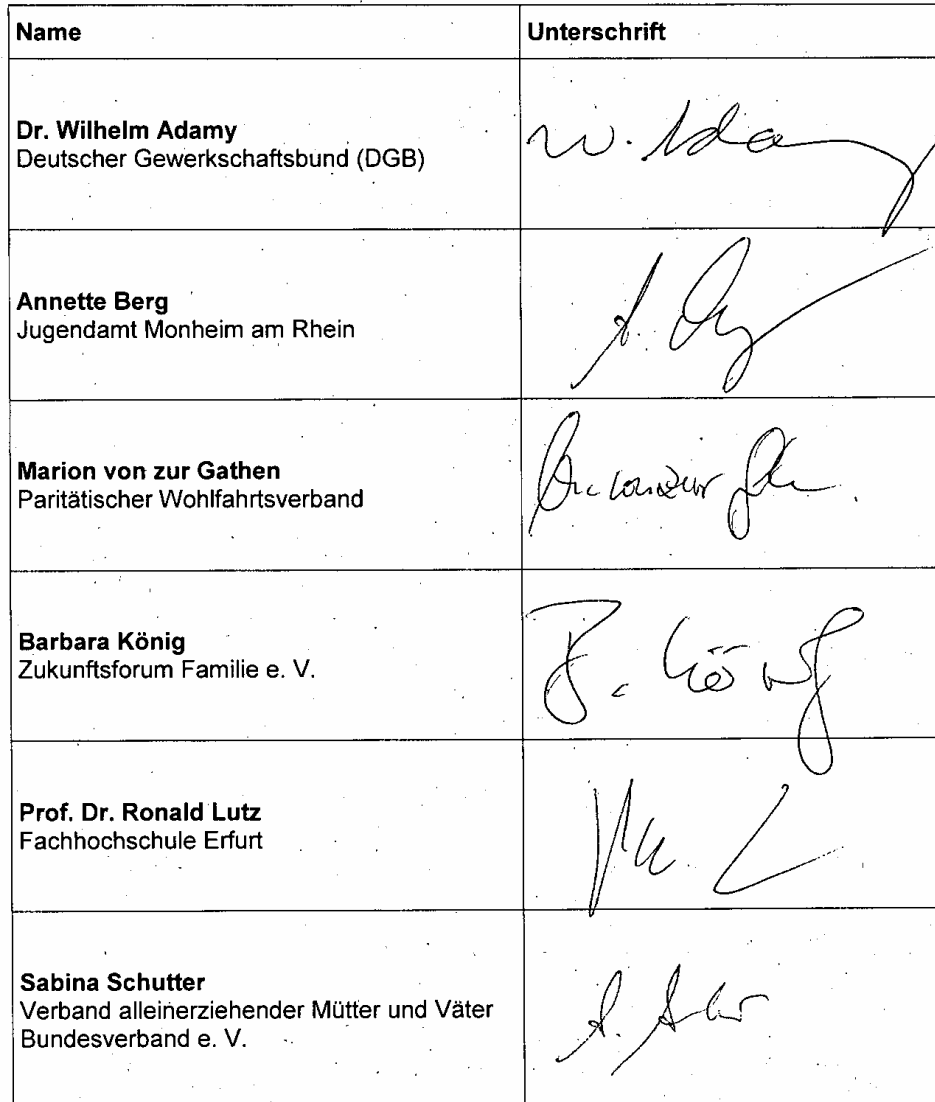 Name Unterschrift
Dr. Wilhelm Adamy
Deutscher Gewerkschaftsbund (DGB)
W. Adamy
Annette Berg
Jugendamt Monheim am Rhein
A.
Marion von zur Gathen
Paritätischer Wohlfahrtsverband
von zur
Barbara König
Zukunftsforum Familie e. V.
B. König
Prof. Dr. Ronald Lutz
Fachhochschule Erfurt
Sabina Schutter
Verband alleinerziehender Mütter und Väter
Bundesverband e. V.